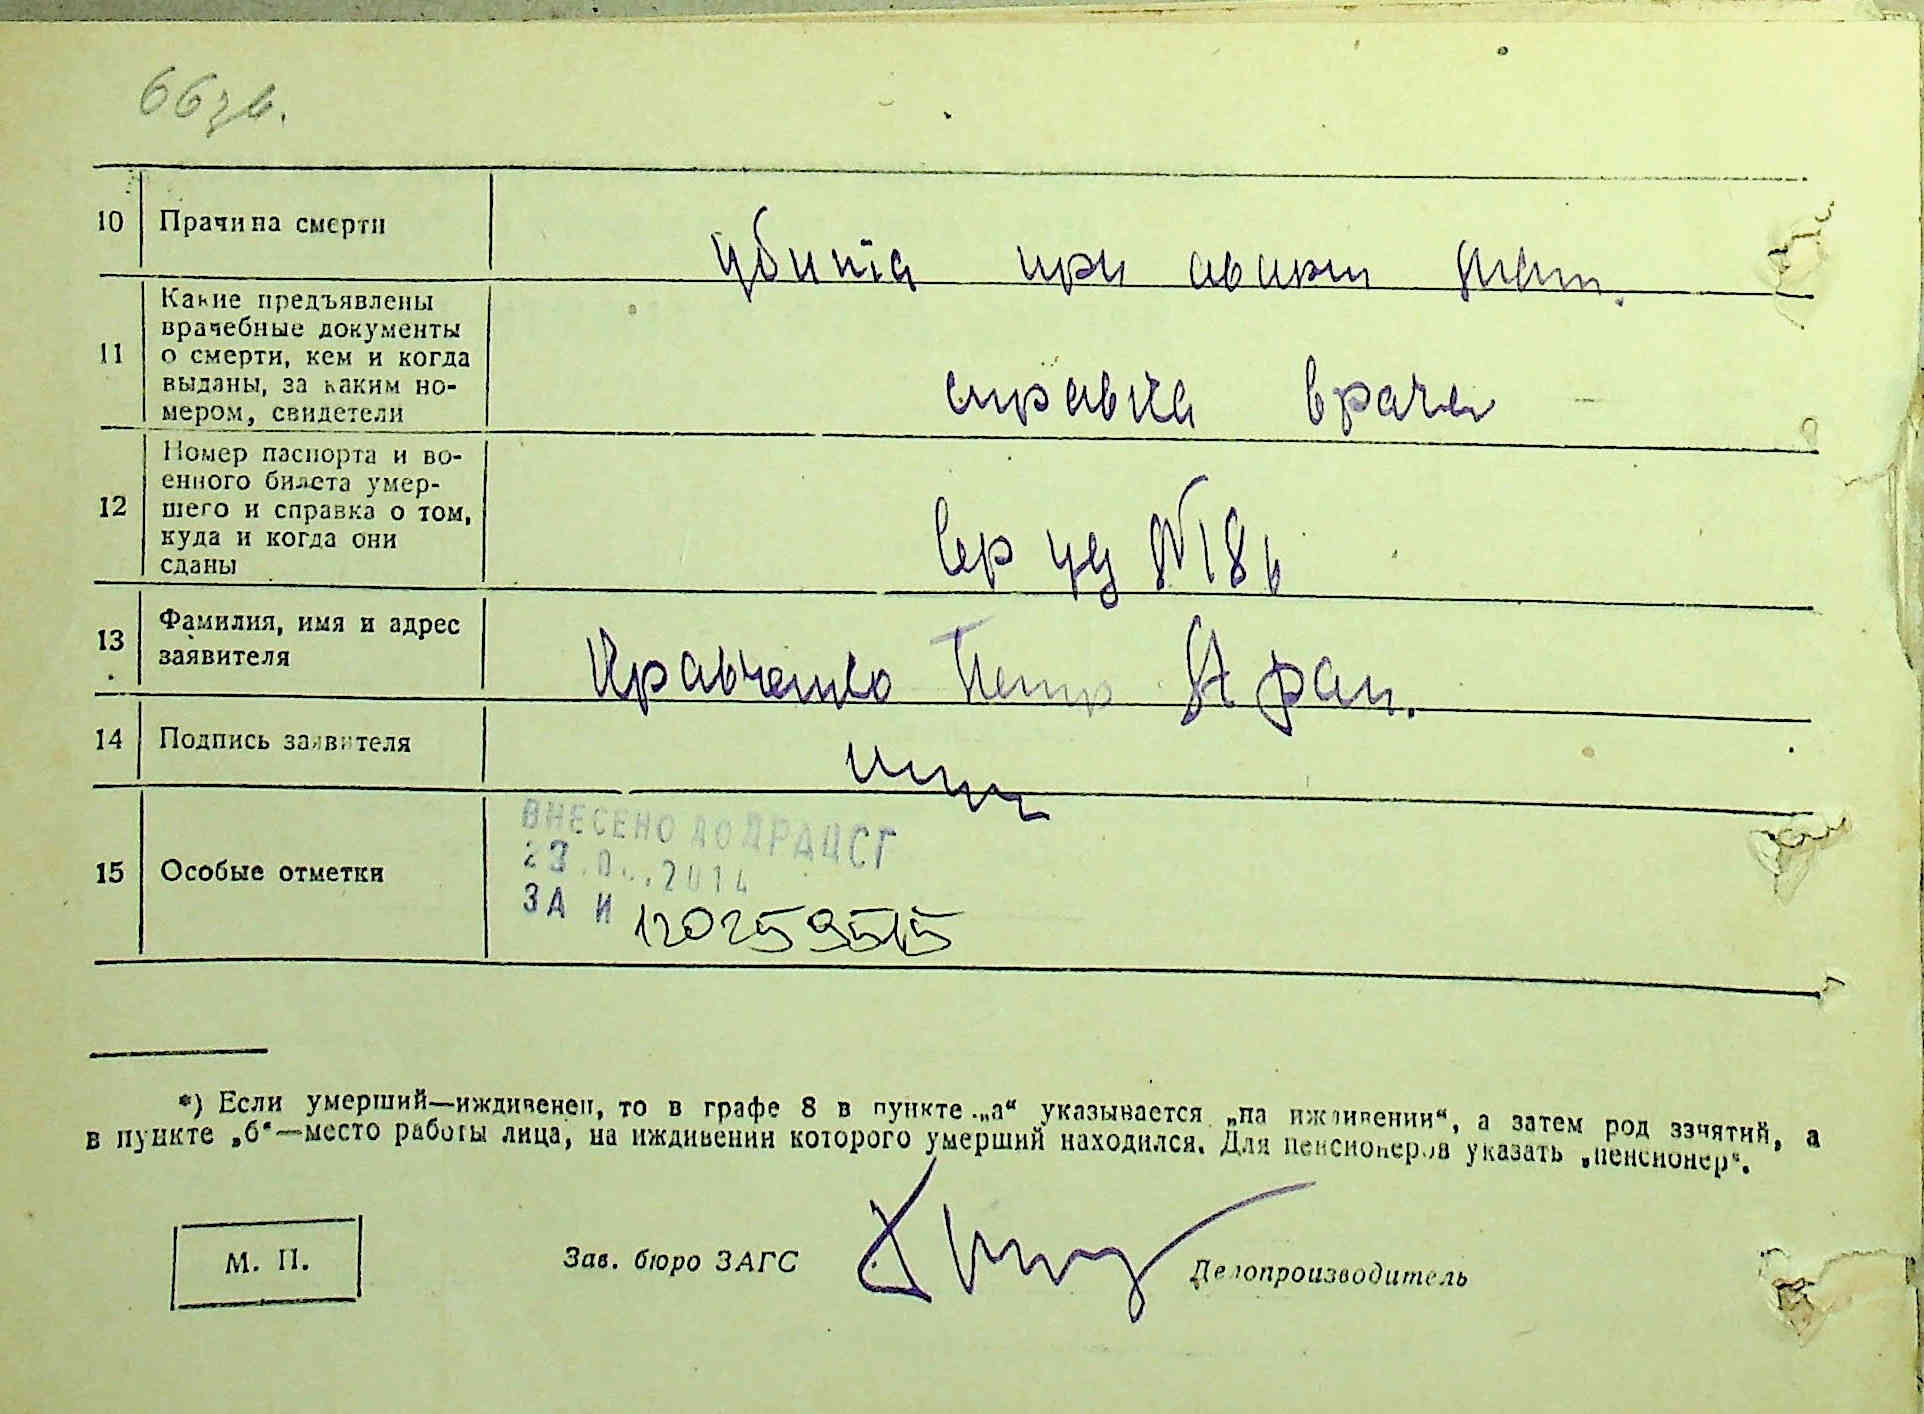 66зв.
10 Причина смерти
убита при авари
11 Какие предъявлены
врачебные документы
о смерти, кем и когда
выданы, за каким но-
мером, свидетели
справка врача
12 Номер паспорта и во-
енного билета умер-
шего и справка о том,
куда и когда они
сданы
№ 186
13 Фамилия, имя и адрес
заявителя
Кравченко Петр
14 Подпись заявителя
15 Особые отметки
ВНЕСЕНО ДО ДРАЦСГ
2014
ЗА И 120259515
*) Если умерший—иждивенец, то в графе 8 в пункте „а“ указывается „на иждивении“, а затем род занятий, а
в пункте „б“—место работы лица, на иждивении которого умерший находился. Для пенсионеров указать „пенсионер“.
М. П. Зав. бюро ЗАГС Делопроизводитель